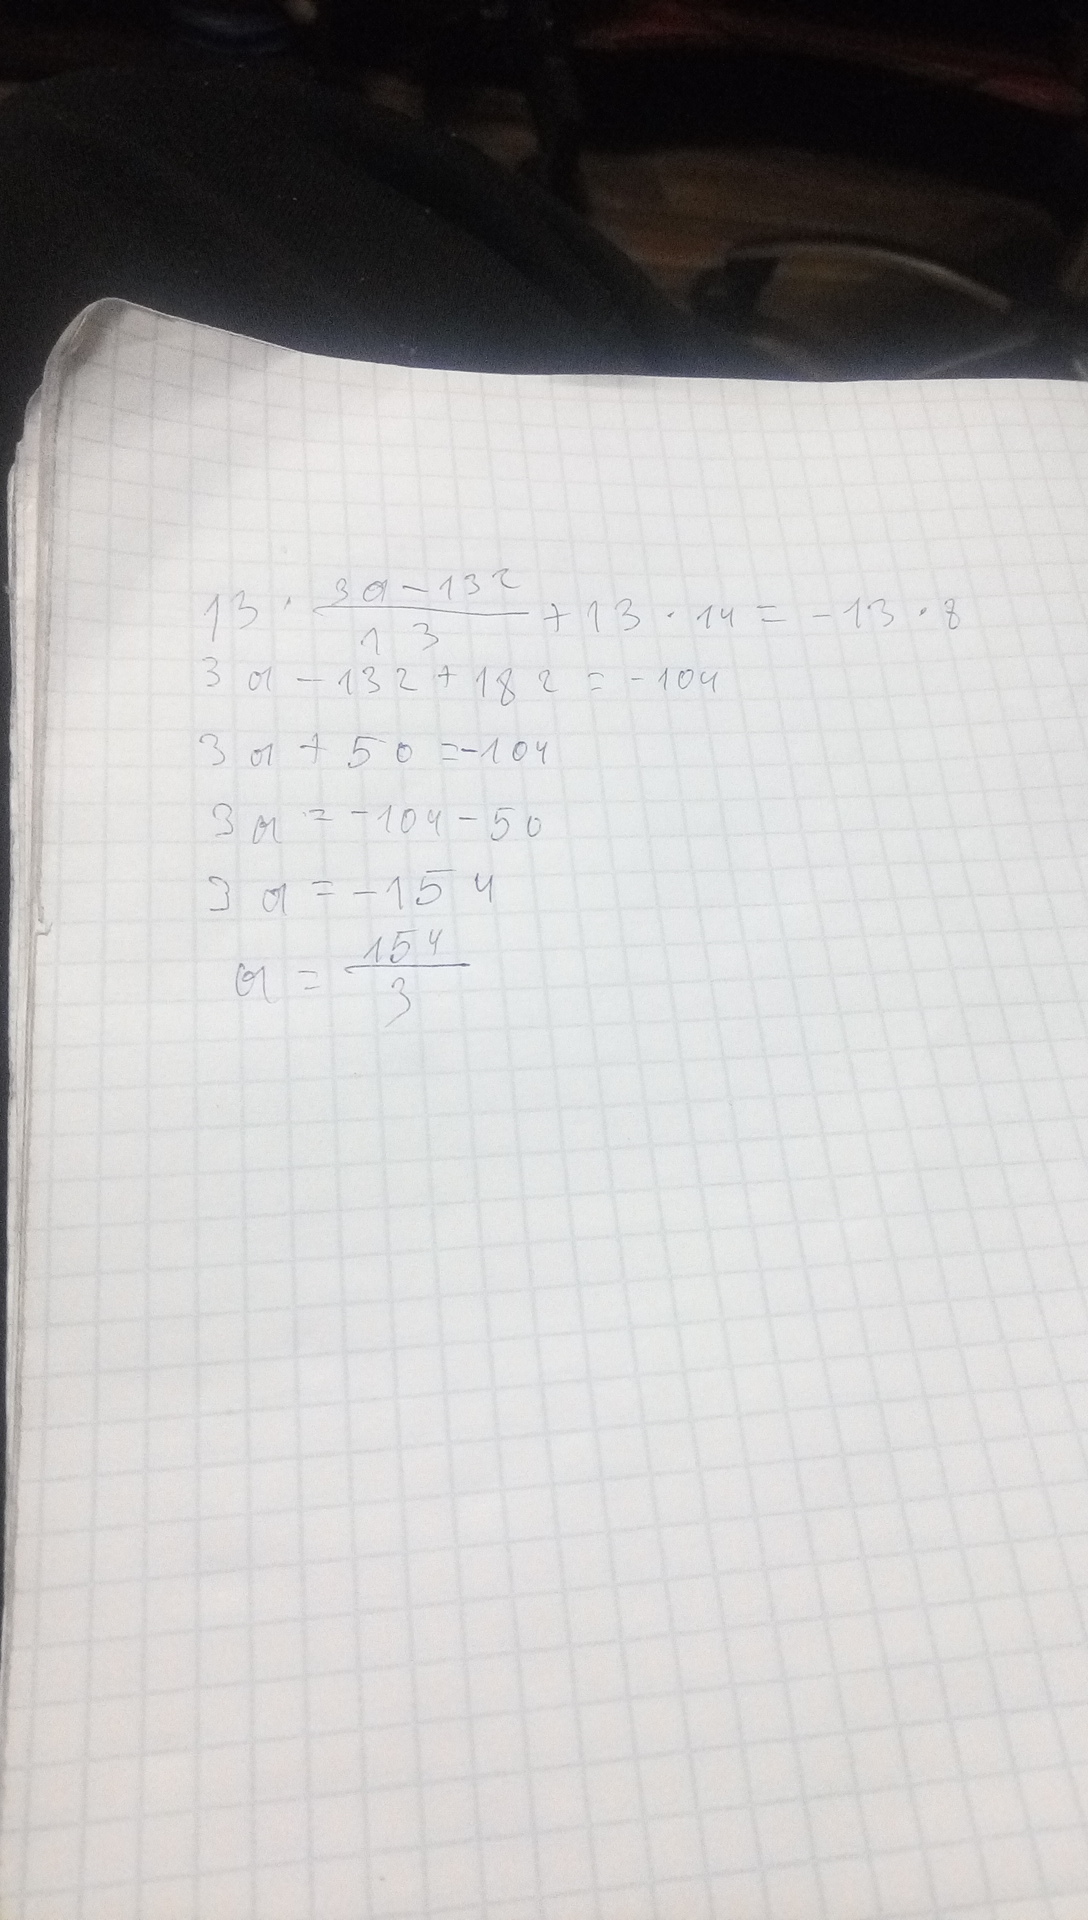 13 · (3a - 132)/13 + 13 · 14 = -13 · 8
3a - 132 + 182 = -104
3a + 50 = -104
3a = -104 - 50
3a = -154
a = 154/3